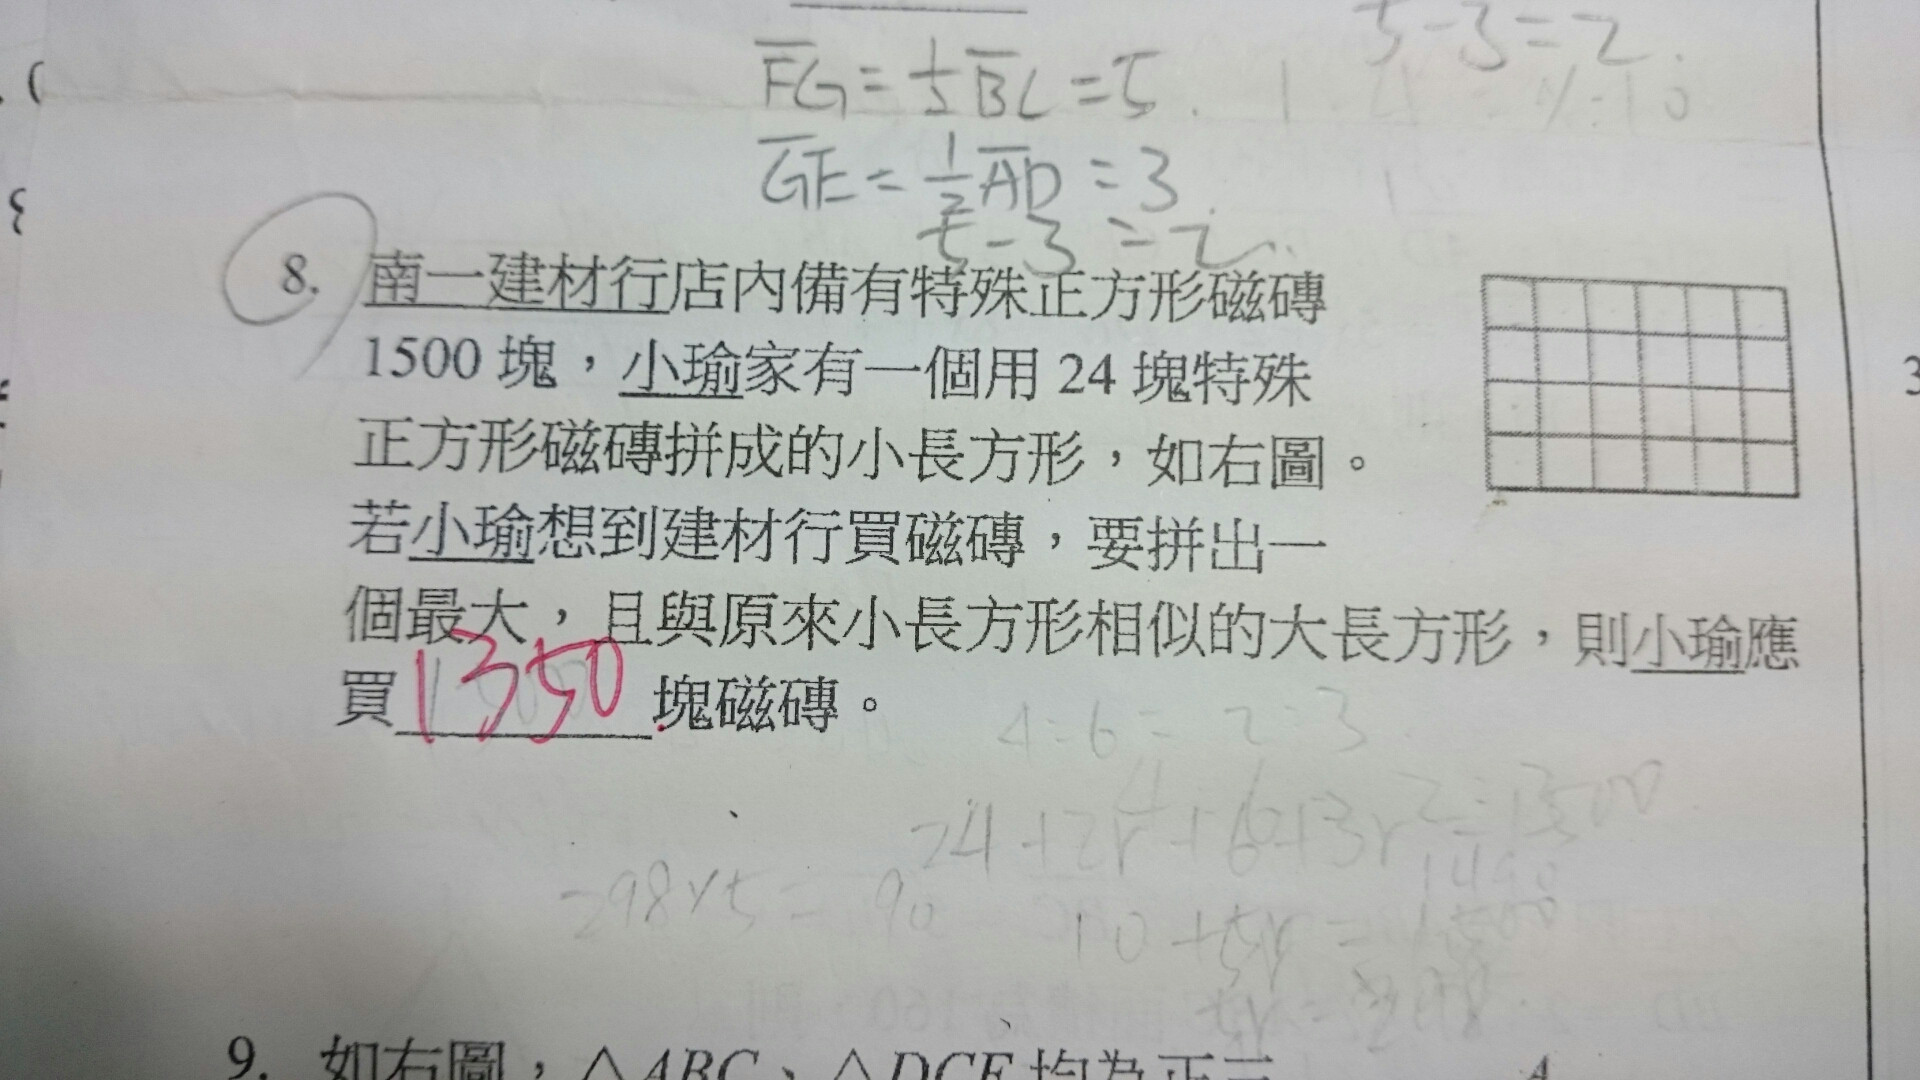 5-3=2.
FG=1/2BC=5.
GE=1/2AD=3
5-3=2.
8. 南一建材行店內備有特殊正方形磁磚
1500 塊，小瑜家有一個用 24 塊特殊
正方形磁磚拼成的小長方形，如右圖。
若小瑜想到建材行買磁磚，要拼出一
個最大，且與原來小長方形相似的大長方形，則小瑜應
買1350塊磁磚。
4:6=2:3
298×5= 90
9. 如右圖，△ABC、△DCE 均為正三
A
3